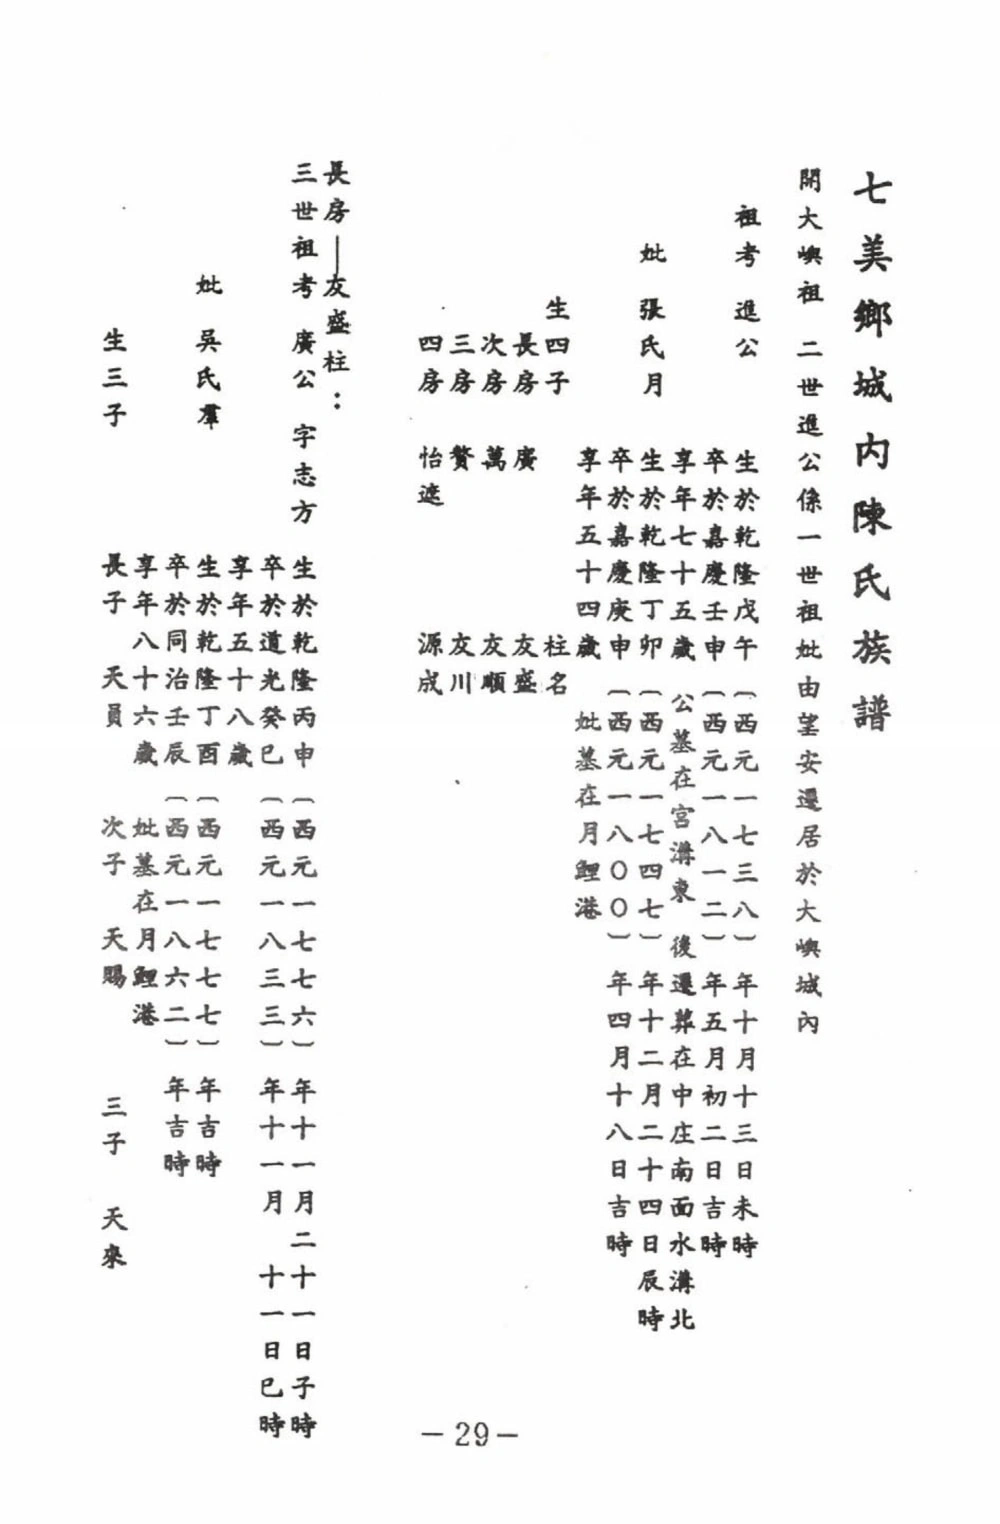 七美鄉城內陳氏族譜
開大嶼祖 二世進公係一世祖妣由望安遷居於大嶼城內
祖考 進公 生於乾隆戊午〔西元一七三八〕年十月十三日未時
卒於嘉慶壬申〔西元一八一二〕年五月初二日吉時
享年七十五歲 公墓在宮溝東 後遷葬在中庄南面水溝北
妣 張氏月 生於乾隆丁卯〔西元一七四七〕年十二月二十四日辰時
卒於嘉慶庚申〔西元一八〇〇〕年四月十八日吉時
享年五十四歲 妣墓在月鯉港
生四子 柱名
長房 廣 友盛
次房 萬 友順
三房 贊 友川
四房 怡遮 源成
長房—友盛柱：
三世祖考 廣公 字志方 生於乾隆丙申〔西元一七七六〕年十一月二十一日子時
卒於道光癸巳〔西元一八三三〕年十一月 十一日巳時
享年五十八歲
妣 吳氏羣 生於乾隆丁酉〔西元一七七七〕年吉時
卒於同治壬辰〔西元一八六二〕年吉時
享年八十六歲 妣墓在月鯉港
生三子 長子 天員 次子 天賜 三子 天來
－29－